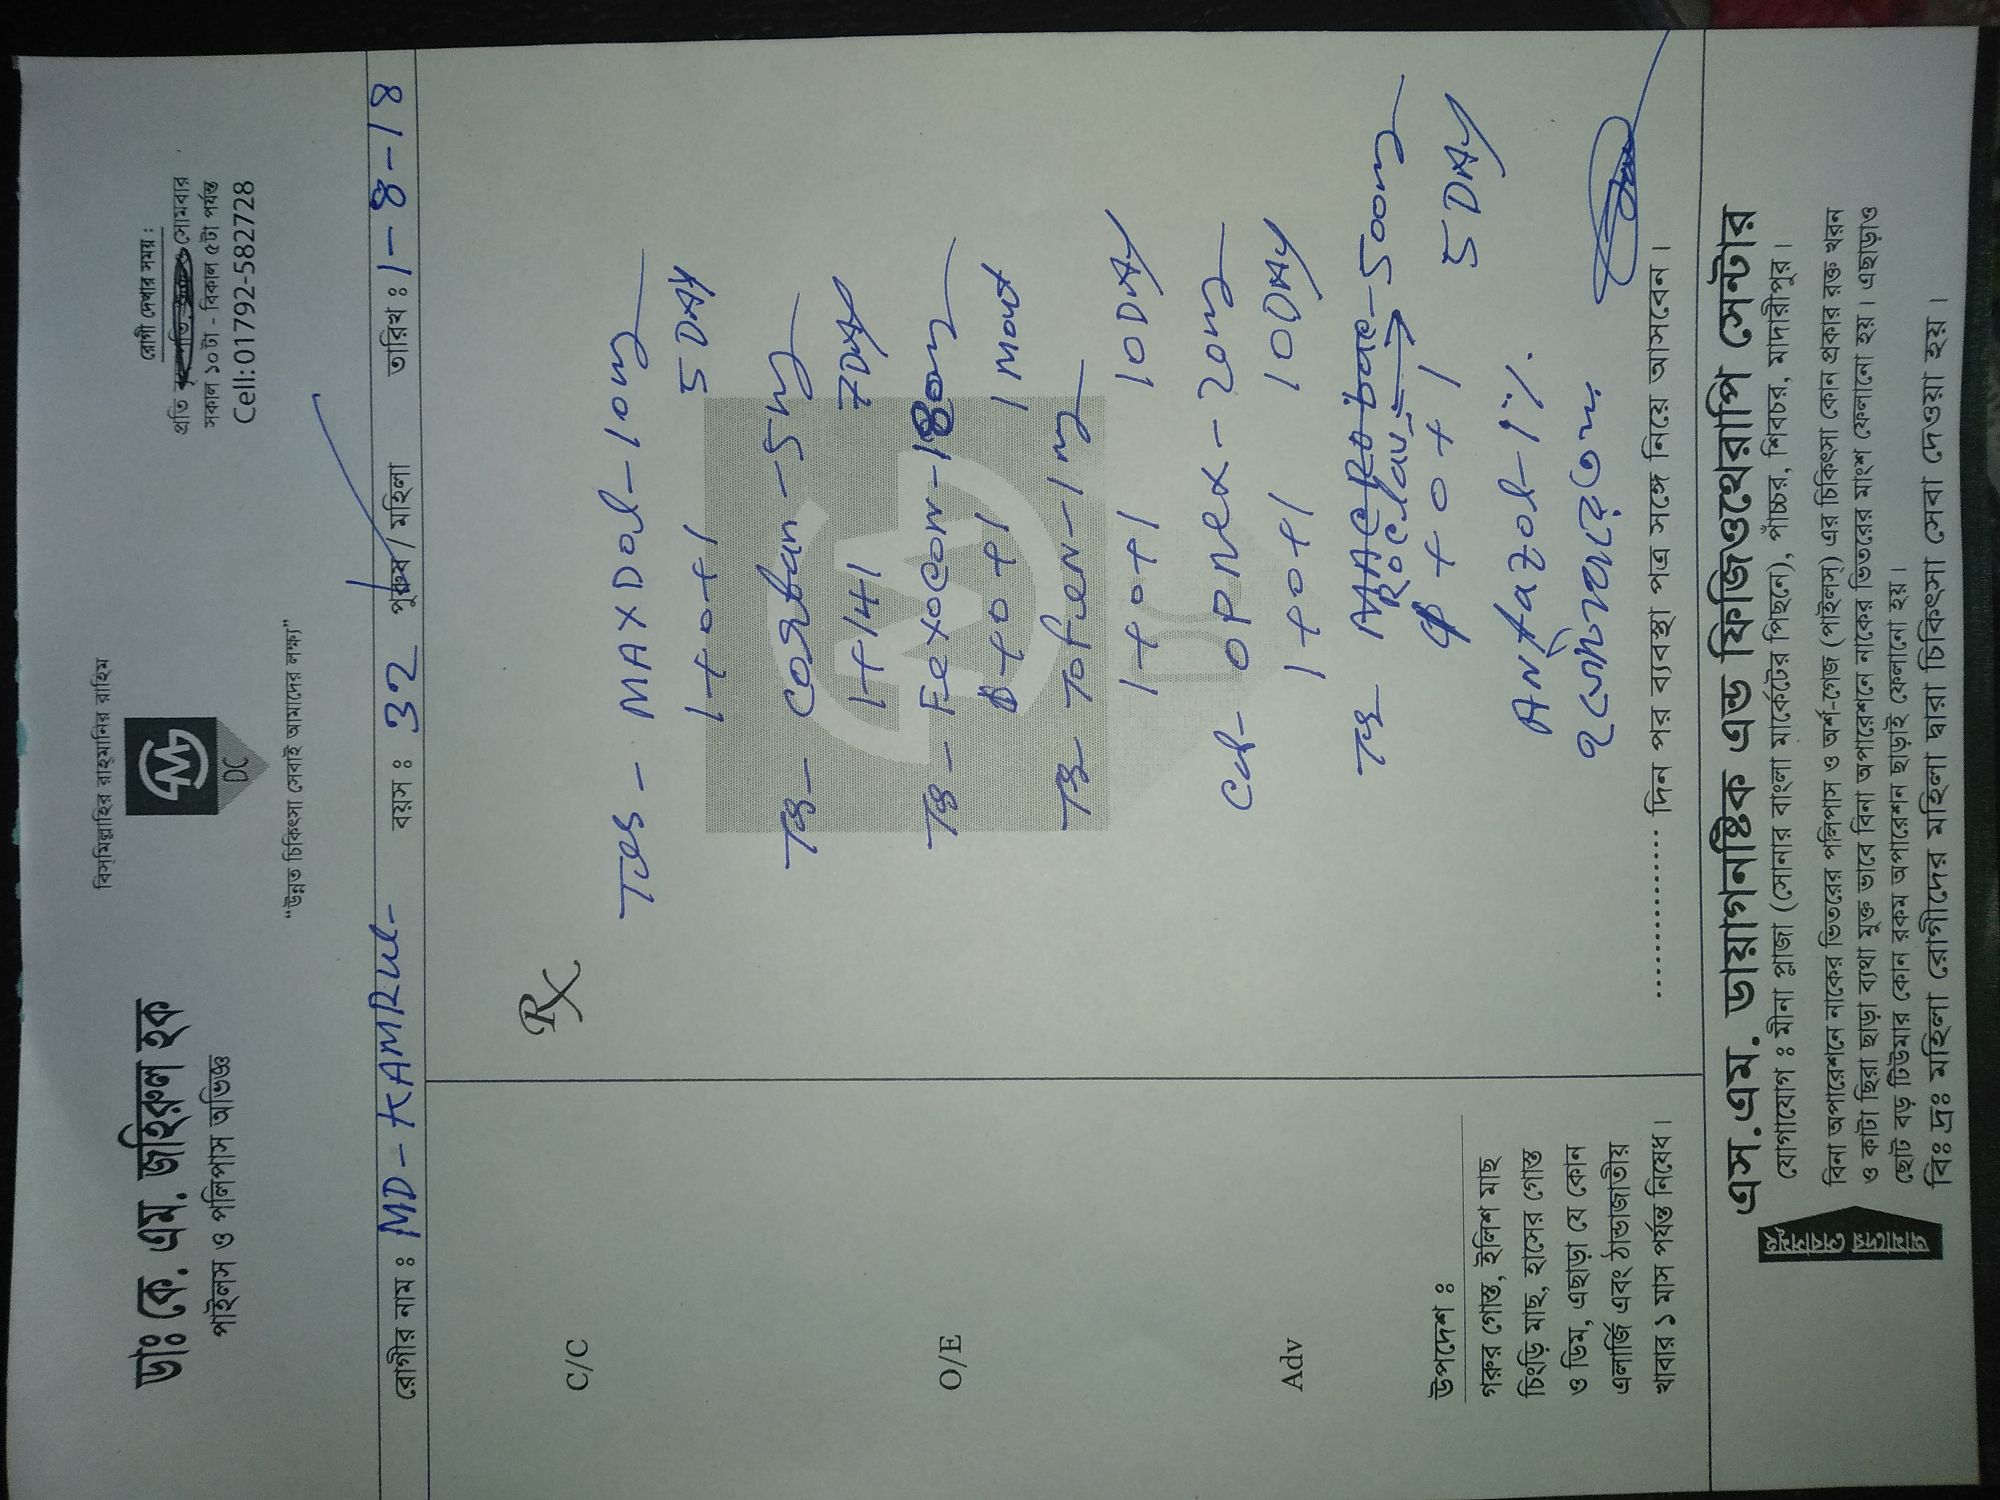 বিসমিল্লাহির রাহ্‌মানির রাহিম
ডাঃ কে. এম. জহিরুল হক
পাইলস ও পলিপাস অভিজ্ঞ
DC
"উন্নত চিকিৎসা সেবাই আমাদের লক্ষ্য"
রোগী দেখার সময় :
প্রতি সোমবার
সকাল ১০টা - বিকাল ৫টা পর্যন্ত
Cell:01792-5827728
রোগীর নাম : MD - KAMRUL - বয়স : 32 পুরুষ / মহিলা তারিখ : 1-8-18
C/C
O/E
Adv
উপদেশ :
গরুর গোস্ত, ইলিশ মাছ
চিংড়ি মাছ, হাসের গোস্ত
ও ডিম, এছাড়া যে কোন
এলার্জি এবং ঠান্ডাজাতীয়
খাবার ১ মাস পর্যন্ত নিষেধ।
Rx
MAXDOL - 10mg
1+0+1 5 DAY
- 5mg
1+1+1 7 DAY
- Fexocon - 180mg
0+0+1 1 Mont
Tofen - 1mg
1+0+1 10 DAY
OPNEX - 20mg
1+0+1 10 DAY
- 500mg
Roclav
+0+1 5 DAY
Antazol - 1%
............... দিন পর ব্যবস্থা পত্র সঙ্গে নিয়ে আসবেন।
এস.এম. ডায়াগনষ্টিক এন্ড ফিজিওথেরাপি সেন্টার
যোগাযোগ : মীনা প্লাজা (সোনার বাংলা মার্কেটের পিছনে), পাঁচ্চর, শিবচর, মাদারীপুর।
আমাদের
সেবাসমূহ
বিনা অপারেশনে নাকের ভিতরের পলিপাস ও অর্শ-গেজ (পাইলস) এর চিকিৎসা কোন প্রকার রক্ত খরন
ও কাটা ছিরা ছাড়া ব্যথা মুক্ত ভাবে বিনা অপারেশনে নাকের ভিতরের মাংশ ফেলানো হয়। এছাড়াও
ছোট বড় টিউমার কোন রকম অপারেশন ছাড়াই ফেলানো হয়।
বিঃ দ্রঃ মহিলা রোগীদের মহিলা দ্বারা চিকিৎসা সেবা দেওয়া হয়।